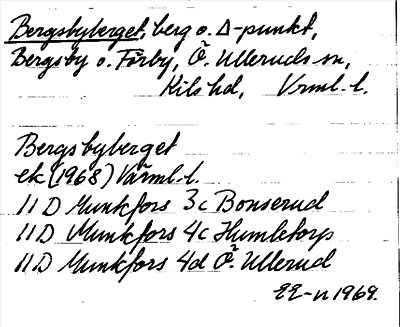 Bergsbyberget, berg o. Δ-punkt,
Bergsby o. Färby, Ö. Ulleruds sn,
Kils hd, Vrml. l.
Bergsbyberget
ek (1968) Värml. l.
11 D Munkfors 3c Bonserud
11 D Munkfors 4c Humletorp
11 D Munkfors 4d Ö. Ullerud
1969.